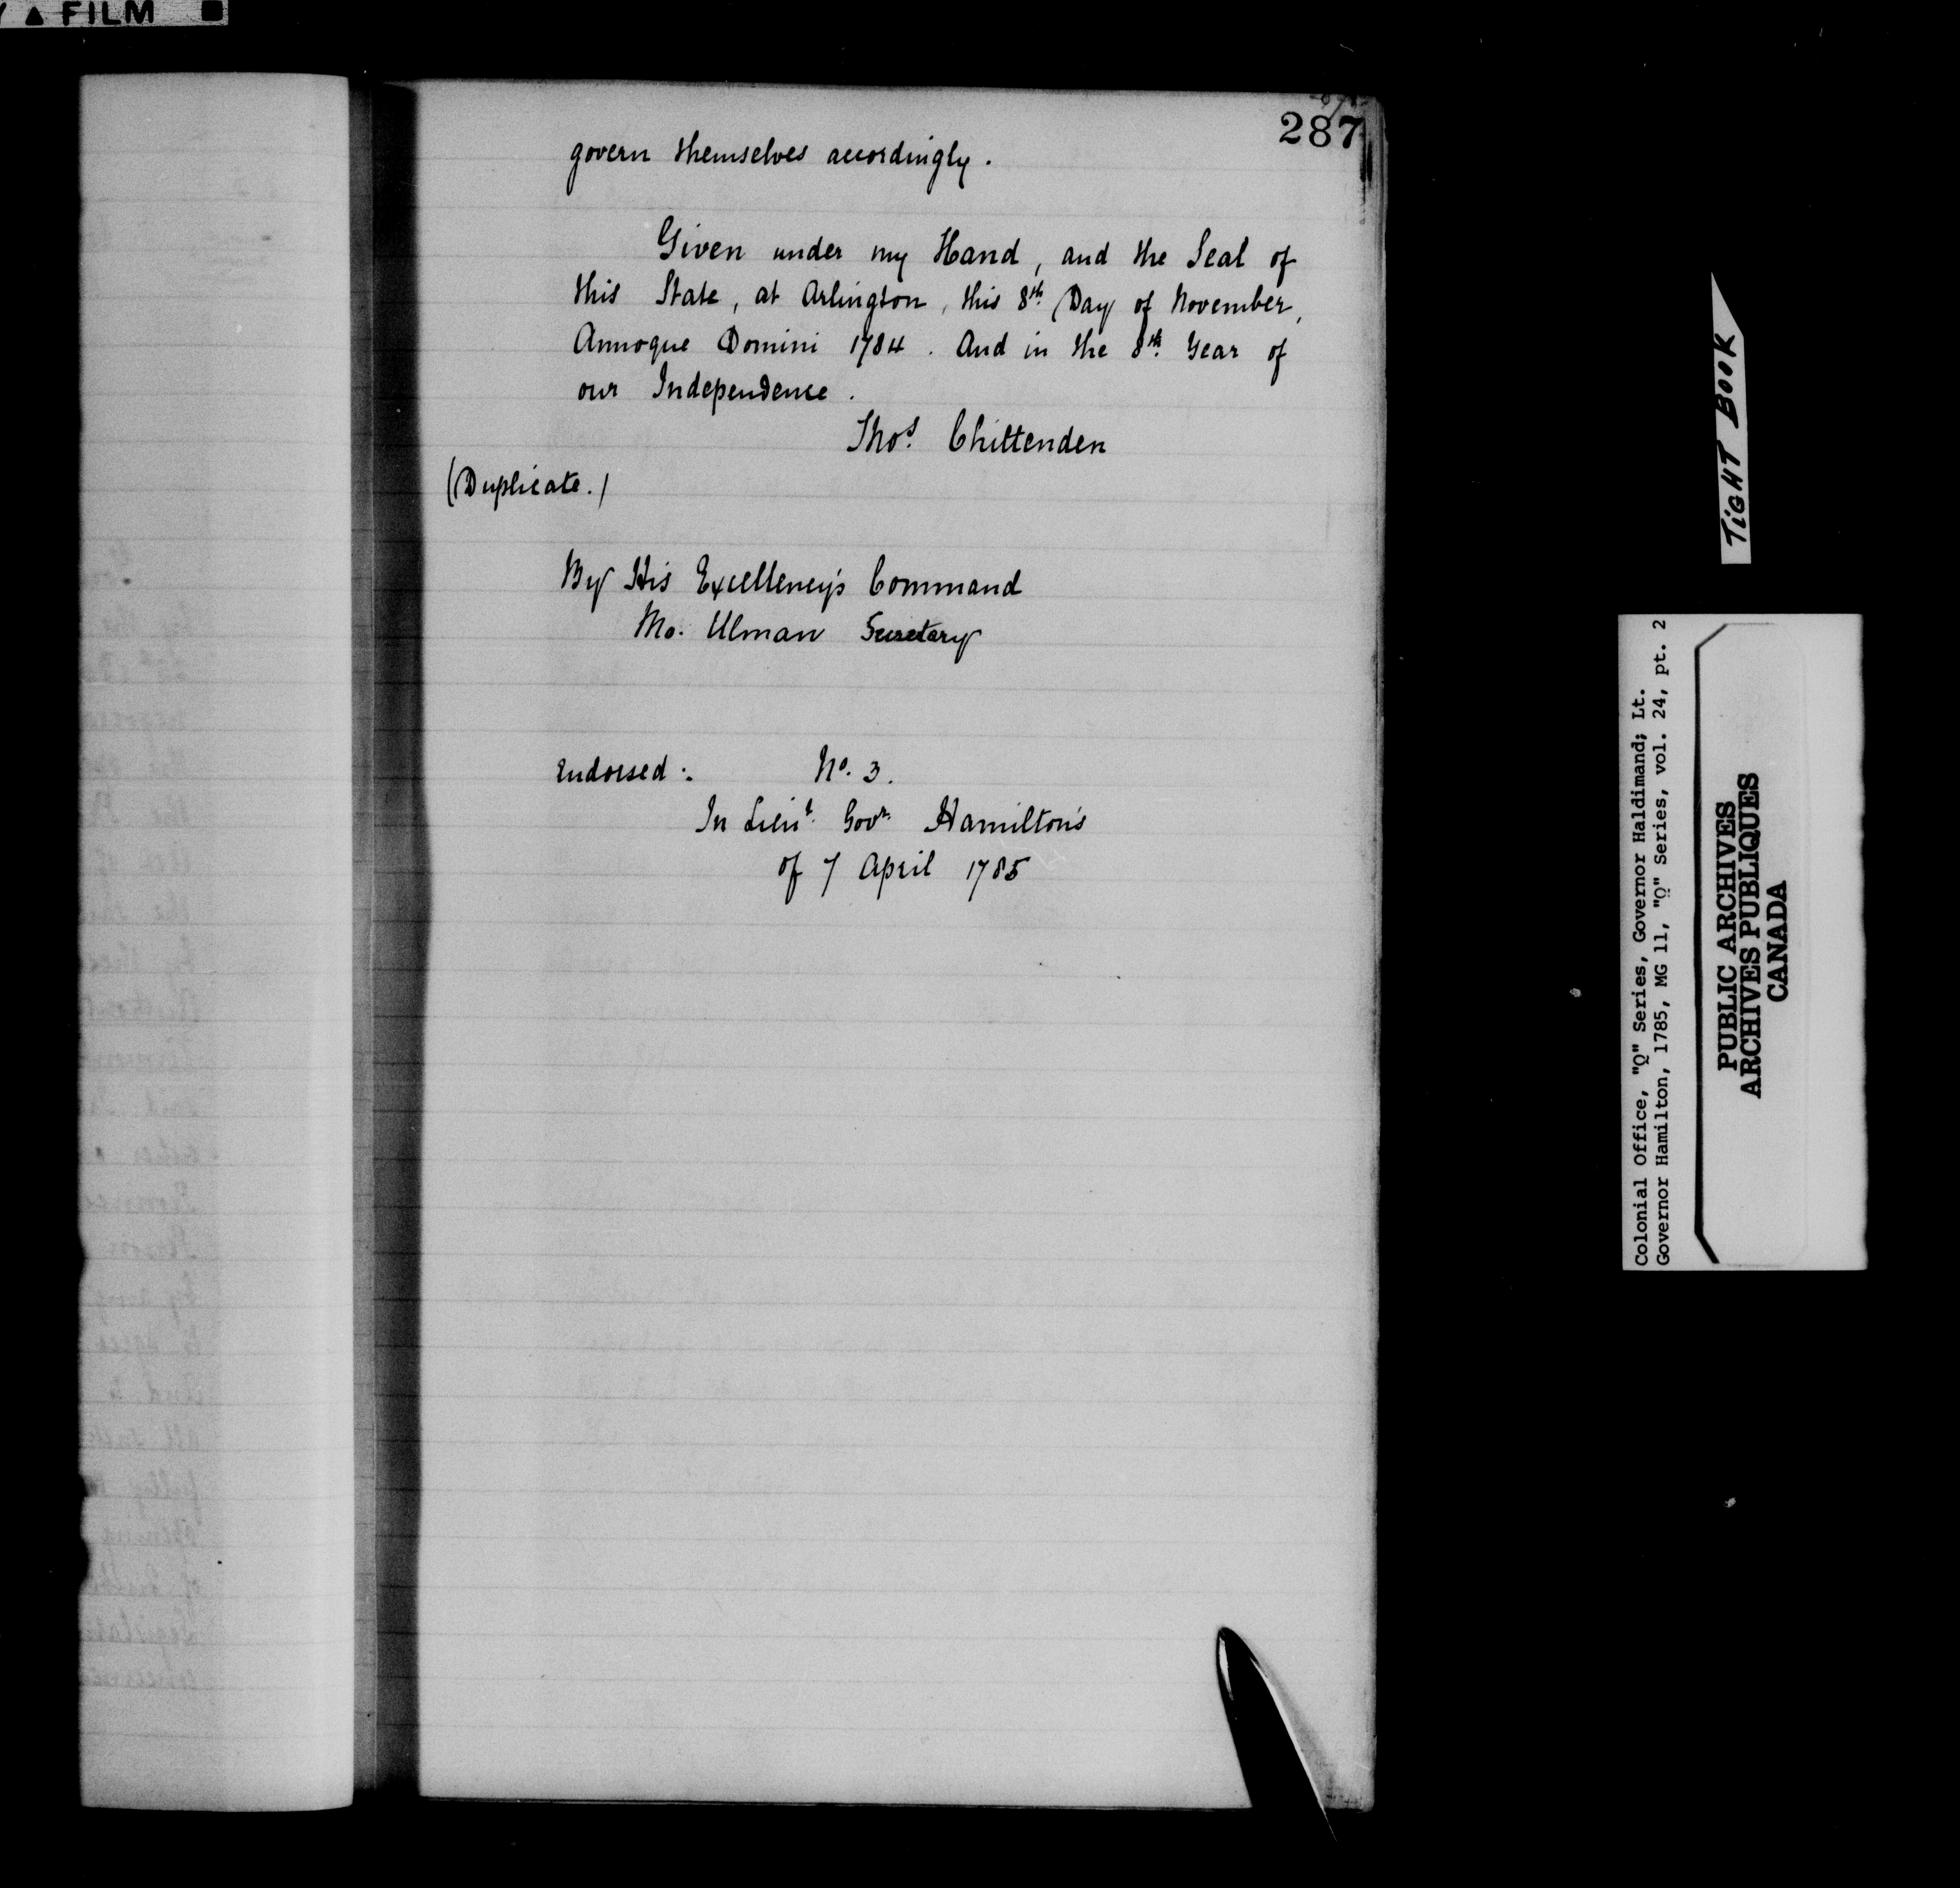 FILM
287
govern themselves accordingly.
Given under my Hand, and the Seal of
this State, at Arlington, this 8th Day of November,
Annoque Domini 1784. And in the 8th Year of
our Independence.
Thos. Chittenden
(Duplicate.)
By His Excellency's Command
Mo. Ulman Secretary
Endorsed: No. 3.
In Lieut. Govr. Hamilton's
of 7 April 1785
TIGHT BOOK
Colonial Office, "Q" Series, Governor Haldimand; Lt.
Governor Hamilton, 1785, MG 11, "Q" Series, vol. 24, pt. 2
PUBLIC ARCHIVES
ARCHIVES PUBLIQUES
CANADA